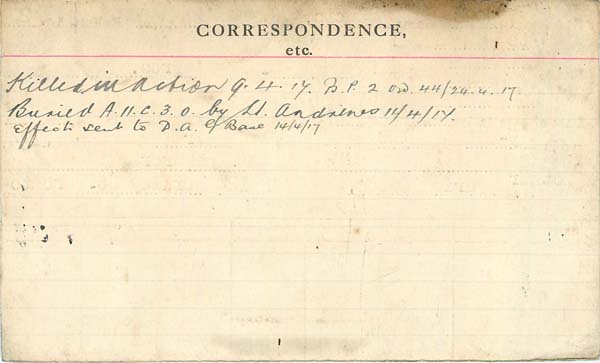 CORRESPONDENCE,
etc.
Killed in Action 9. 4. 17. B.P. 2 ord. 44/24. 4. 17
Buried A.11.C.3.0. by Lt. Andrews 11/4/17.
Effects sent to D.A.G Base 14/4/17